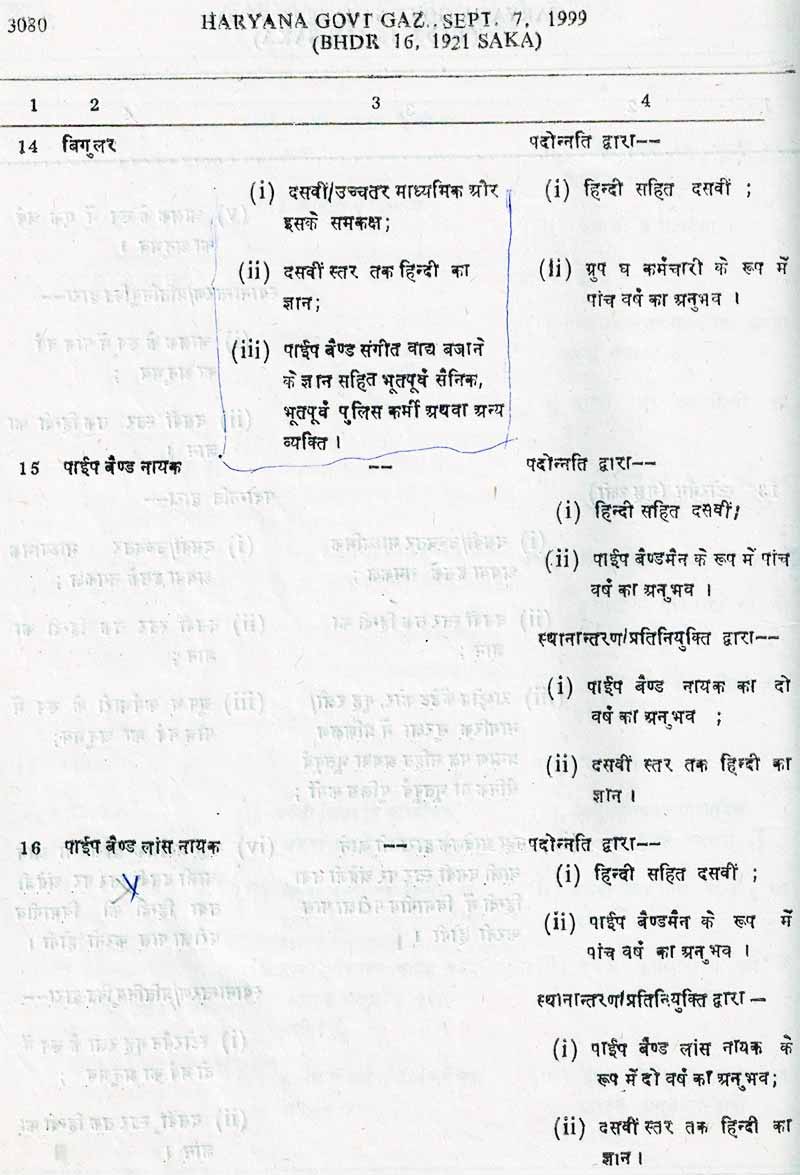 3080
HARYANA GOVT GAZ., SEPT. 7, 1999
(BHDR 16, 1921 SAKA)
1 2 3 4
14 बिगुलर
(i) दसवीं/उच्चतर माध्यमिक और
इसके समकक्ष;
(ii) दसवीं स्तर तक हिन्दी का
ज्ञान;
(iii) पाईप बैण्ड संगीत वाद्य बजाने
के ज्ञान सहित भूतपूर्व सैनिक,
भूतपूर्व पुलिस कर्मी अथवा अन्य
व्यक्ति ।
पदोन्नति द्वारा--
(i) हिन्दी सहित दसवीं ;
(ii) ग्रुप घ कर्मचारी के रूप में
पांच वर्ष का अनुभव ।
15 पाईप बैण्ड नायक
--
पदोन्नति द्वारा--
(i) हिन्दी सहित दसवीं;
(ii) पाईप बैण्डमैन के रूप में पांच
वर्ष का अनुभव ।
स्थानान्तरण/प्रतिनियुक्ति द्वारा--
(i) पाईप बैण्ड नायक का दो
वर्ष का अनुभव ;
(ii) दसवीं स्तर तक हिन्दी का
ज्ञान ।
16 पाईप बैण्ड लांस नायक
--
पदोन्नति द्वारा--
(i) हिन्दी सहित दसवीं ;
(ii) पाईप बैण्डमैन के रूप में
पांच वर्ष का अनुभव ।
स्थानान्तरण/प्रतिनियुक्ति द्वारा—
(i) पाईप बैण्ड लांस नायक के
रूप में दो वर्ष का अनुभव;
(ii) दसवीं स्तर तक हिन्दी का
ज्ञान ।